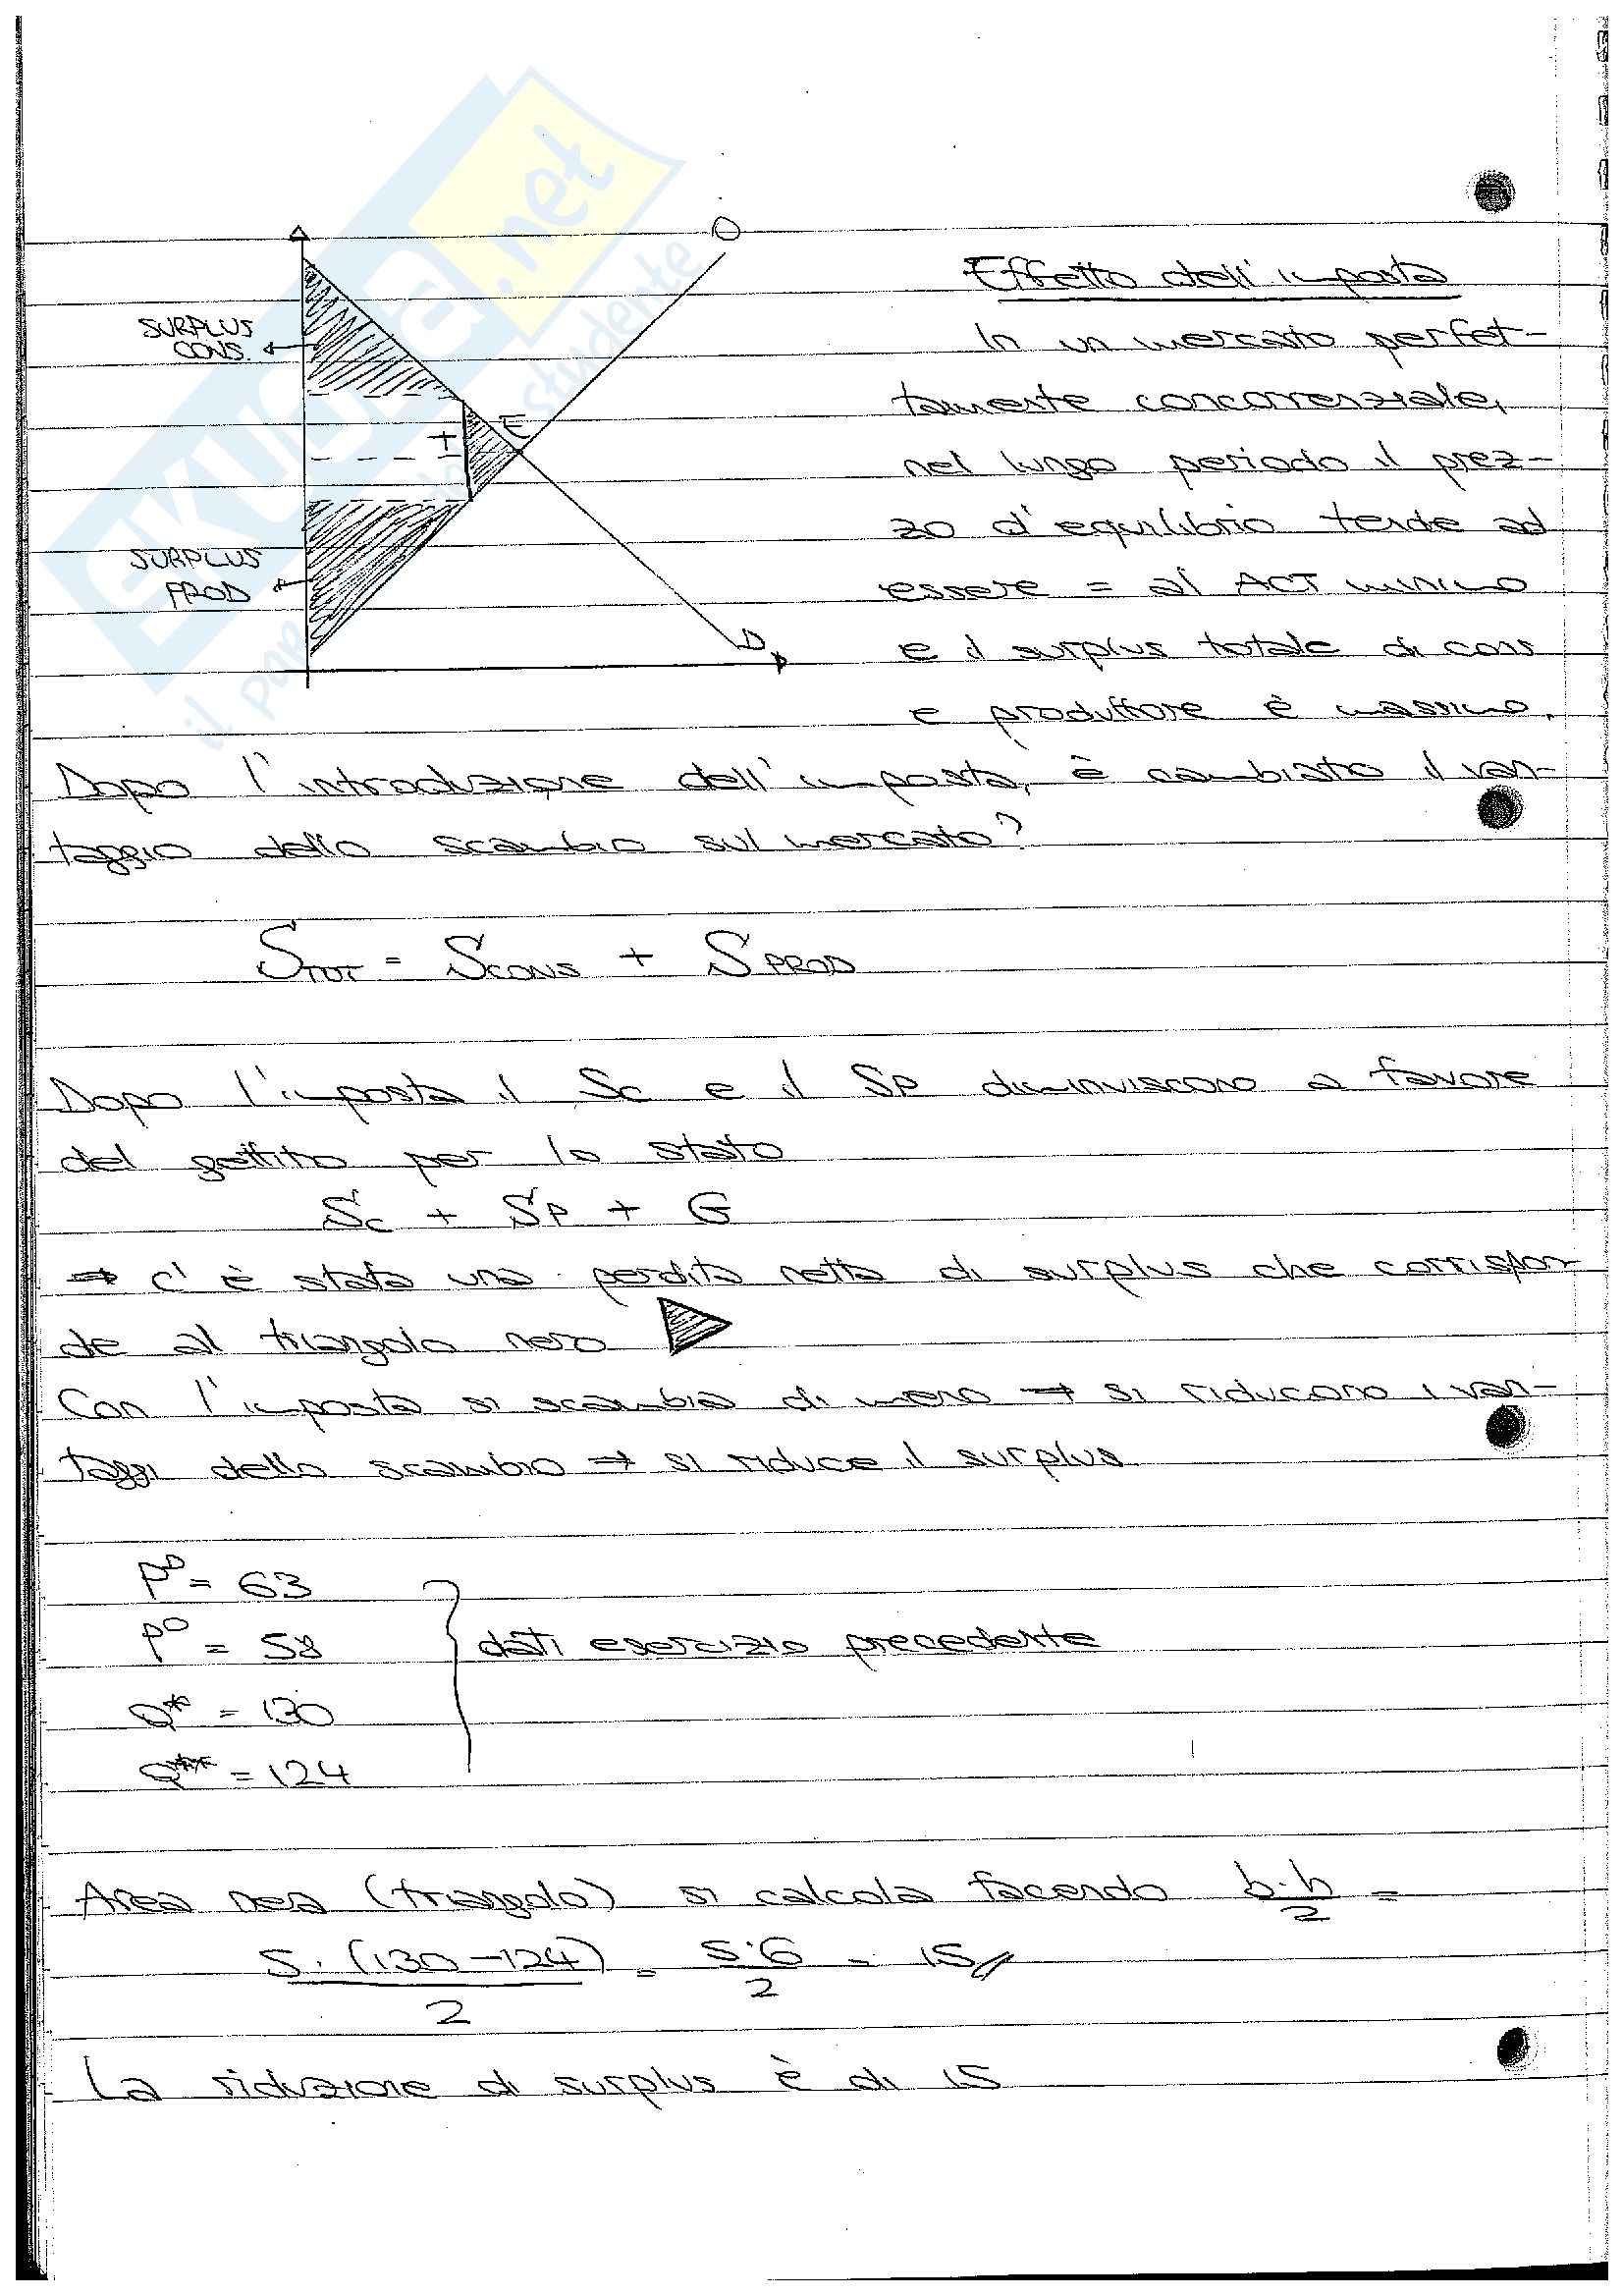 O
SURPLUS
CONS.
T
E
SURPLUS
PROD
D
Effetto dell'imposta
In un mercato perfet-
tamente concorrenziale,
nel lungo periodo il prez-
zo d'equilibrio tende ad
essere = al ACT minimo
e il surplus totale di cons
e produttore è massimo.
Dopo l'introduzione dell'imposta, è cambiato il van-
taggio dello scambio sul mercato?
STOT = SCONS + SPROD
Dopo l'imposta il Sc e il SP diminuiscono a favore
del gettito per lo stato
Sc + SP + G
⇒ c'è stata una perdita netta di surplus che corrispon-
de al triangolo nero
Con l'imposta si scambia di meno ⇒ si riducono i van-
taggi dello scambio ⇒ si riduce il surplus
P^D = 63
P^O = 58
Q* = 130
Q** = 124
dati esercizio precedente
Area nera (triangolo) si calcola facendo b·h/2 =
5·(130-124)/2 = 5·6/2 = 15//
La riduzione di surplus è di 15
SKUOLA.net
il portale dello studente